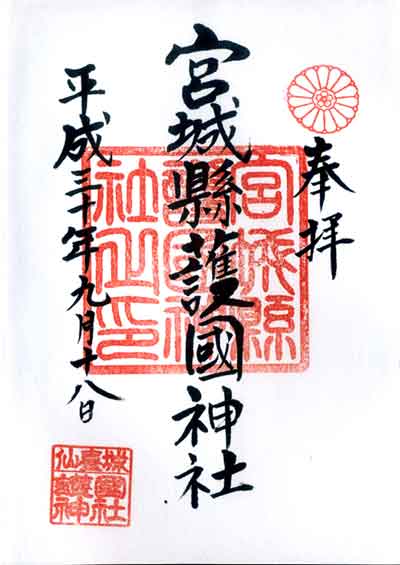 奉拝
宮城縣護國神社
平成三十年九月十八日
宮城縣
護國神
社之印